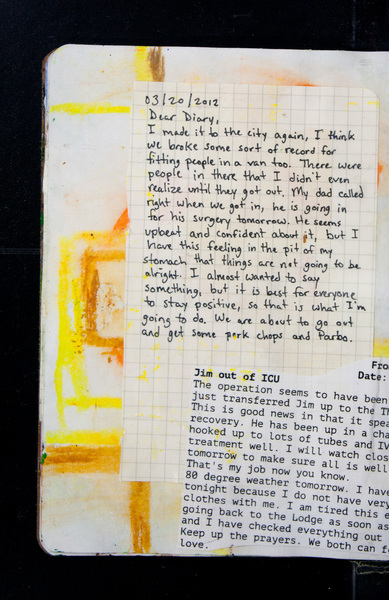 03/20/2012
Dear Diary,
I made it to the city again, I think
we broke some sort of record for
fitting people in a van too. There were
people in there that I didn't even
realize until they got out. My dad called
right when we got in, he is going in
for his surgery tomorrow. He seems
upbeat and confident about it, but I
have this feeling in the pit of my
stomach that things are not going to be
alright. I almost wanted to say
something, but it is best for everyone
to stay positive, so that is what I'm
going to do. We are about to go out
and get some pork chops and Parbo.
Fro
Date:
Jim out of ICU
The operation seems to have been
just transferred Jim up to the Th
This is good news in that it spea
recovery. He has been up in a cha
hooked up to lots of tubes and IV
treatment well. I will watch clos
tomorrow to make sure all is well
That's my job now you know.
80 degree weather tomorrow. I have
tonight because I do not have very
clothes with me. I am tired this e
going back to the Lodge as soon as
and I have checked everything out
Keep up the prayers. We both can fe
love.